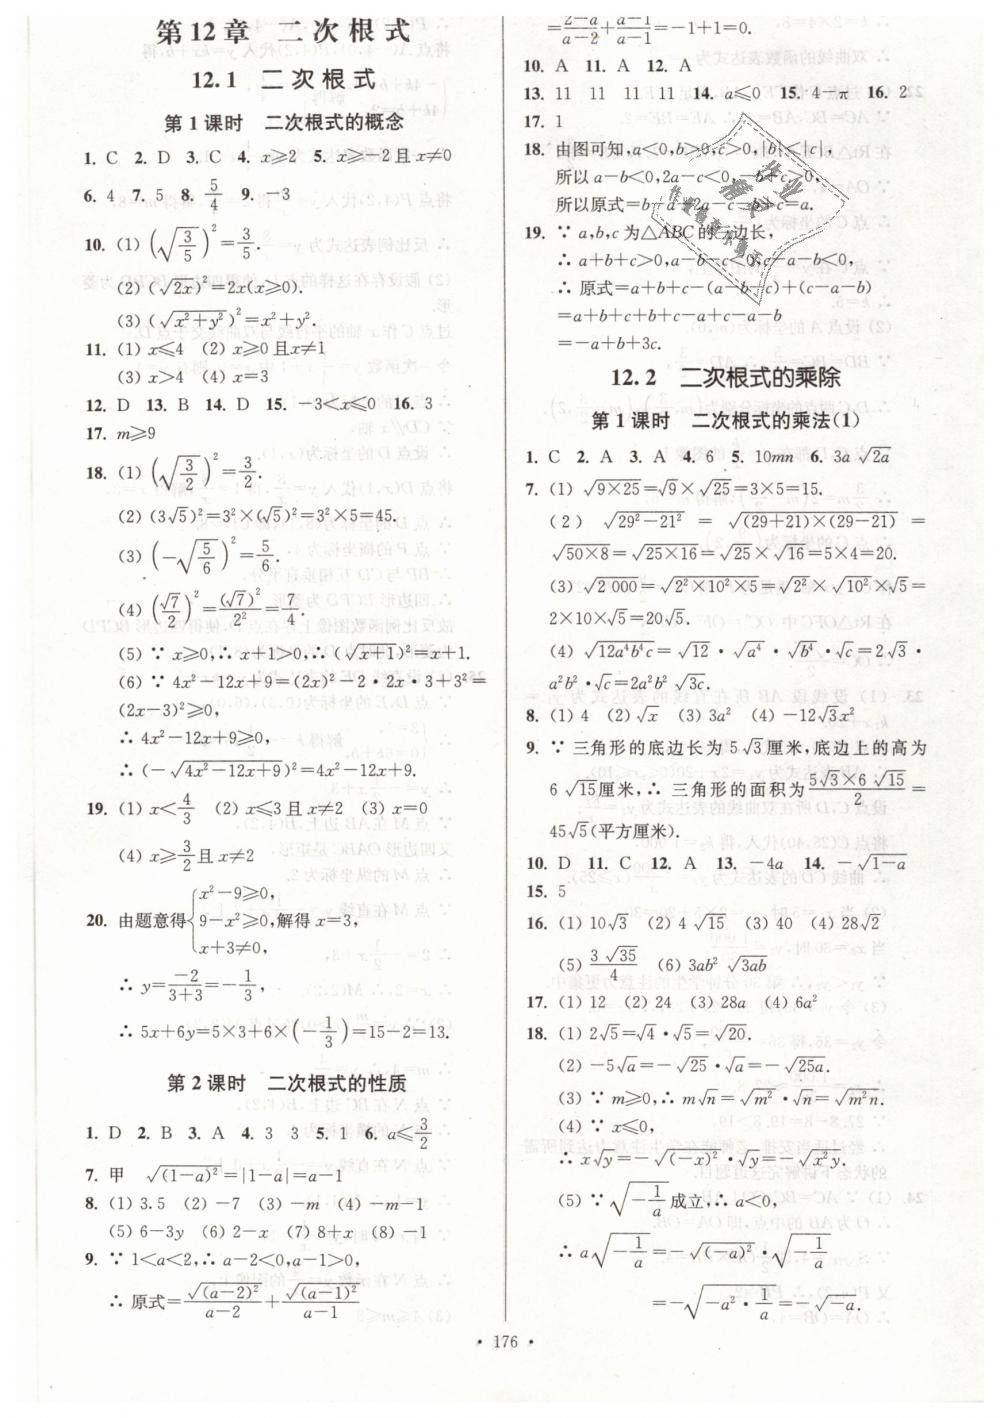 第12章 二次根式
12.1 二次根式
第1课时 二次根式的概念
1. C 2. D 3. C 4. x≥2 5. x≥-2且x≠0
6. 4 7. 5 8. 5/4 9. -3
10. (1) (√(3/5))²=3/5.
(2) (√(2x))²=2x(x≥0).
(3) (√(x²+y²))²=x²+y².
11. (1) x≤4 (2) x≥0且x≠1
(3) x>4 (4) x=3
12. D 13. B 14. D 15. -3<x≤0 16. 3
17. m≥9
18. (1) (√(3/2))²=3/2.
(2) (3√5)²=3²×(√5)²=3²×5=45.
(3) (-√(5/6))²=5/6.
(4) (√7/2)²=(√7)²/2²=7/4.
(5) ∵ x≥0,∴ x+1>0,∴ (√(x+1))²=x+1.
(6) ∵ 4x²-12x+9=(2x)²-2·2x·3+3²=
(2x-3)²≥0,
∴ 4x²-12x+9≥0,
∴ (-√(4x²-12x+9))²=4x²-12x+9.
19. (1) x<4/3 (2) x≤3且x≠2 (3) x=0
(4) x≥3/2且x≠2
20. 由题意得{x²-9≥0, 9-x²≥0, x+3≠0, 解得x=3,
∴ y=-2/(3+3)=-1/3,
∴ 5x+6y=5×3+6×(-1/3)=15-2=13.
第2课时 二次根式的性质
1. D 2. B 3. A 4. 3 3 5. 1 6. a≤3/2
7. 甲 √((1-a)²)=|1-a|=a-1
8. (1) 3.5 (2) -7 (3) -m (4) -m-1
(5) 6-3y (6) 2-x (7) 8+x (8) -1
9. ∵ 1<a<2,∴ a-2<0,a-1>0,
∴ 原式=√((a-2)²)/(a-2)+√((a-1)²)/(a-1)
=(2-a)/(a-2)+(a-1)/(a-1)=-1+1=0.
10. A 11. A 12. A
13. 11 11 11 11 14. a≤0 15. 4-π 16. 2
17. 1
18. 由图可知,a<0,b>0,c>0,|b|<|c|,
所以a-b<0,2a-c<0,-b+c>0,
所以原式=b+a-2a-c-b+c=a.
19. ∵ a,b,c为△ABC的三边长,
∴ a+b+c>0,a-b-c<0,c-a-b<0,
∴ 原式=a+b+c-(a-b-c)+(c-a-b)
=a+b+c+b+c-a+c-a-b
=-a+b+3c.
12.2 二次根式的乘除
第1课时 二次根式的乘法(1)
1. C 2. A 3. A 4. 6 5. 10mn 6. 3a√(2a)
7. (1) √(9×25)=√9×√25=3×5=15.
(2) √(29²-21²) = √((29+21)×(29-21)) =
√(50×8)=√(25×16)=√25×√16=5×4=20.
(3) √2 000=√(2²×10²×5)=√2²×√10²×√5=
2×10×√5=20√5.
(4) √(12a⁴b⁴c)=√12·√a⁴·√b⁴·√c=2√3·
a²b²·√c=2a²b²√(3c).
8. (1) 4 (2) √x (3) 3a² (4) -12√3x²
9. ∵ 三角形的底边长为5√3厘米,底边上的高为
6√15厘米,∴ 三角形的面积为(5√3×6√15)/2=
45√5(平方厘米).
10. D 11. C 12. A 13. -4a 14. -√(1-a)
15. 5
16. (1) 10√3 (2) 4√15 (3) 40 (4) 28√2
(5) 3√35/4 (6) 3ab²√(3ab)
17. (1) 12 (2) 24 (3) 28a (4) 6a²
18. (1) 2√5=√4·√5=√20.
(2) -5√a=-√25·√a=-√(25a).
(3) ∵ m≥0,∴ m√n=√m²·√n=√(m²n).
(4) ∵ x≤0,
∴ x√y=-√((-x)²)·√y=-√(x²y).
(5) ∵ √(-1/a)成立,∴ a<0,
∴ a√(-1/a)=-√((-a)²)·√(-1/a)
=-√(-a²·1/a)=-√(-a).
· 176 ·